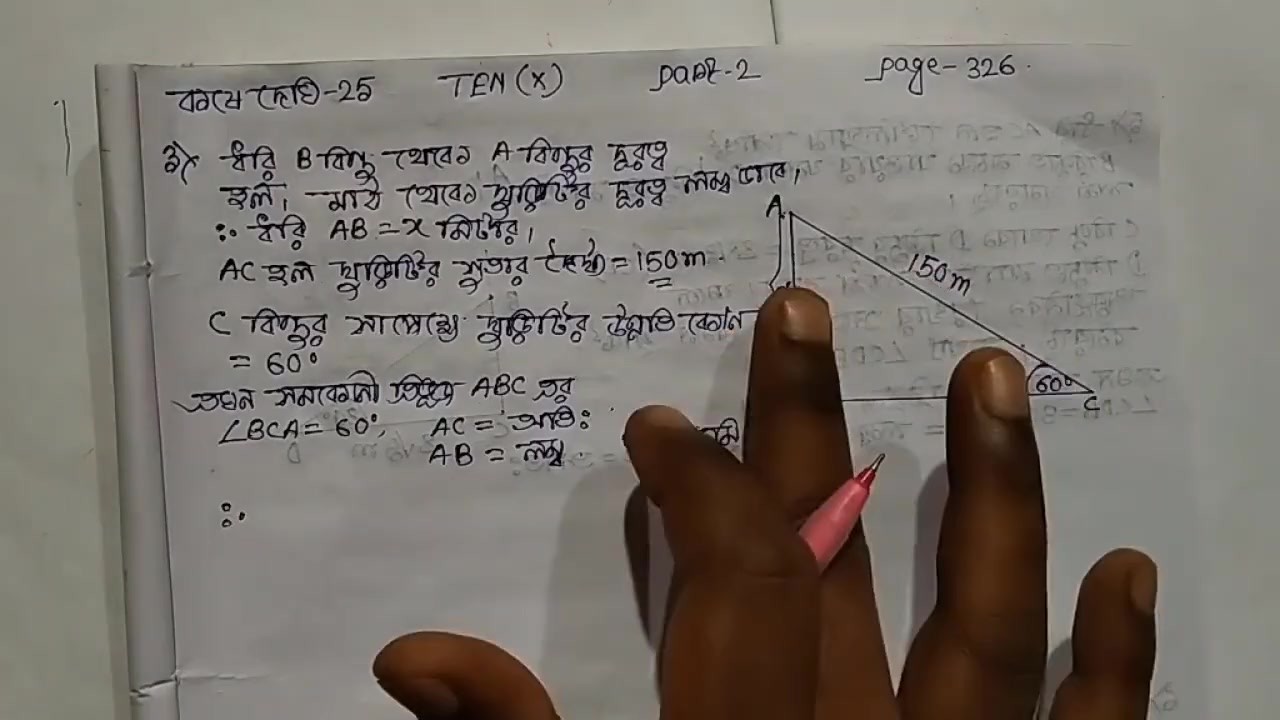 কষে দেখি-25 TEN (X) part-2 page-326.
3) ধরি B বিন্দু থেকে A বিন্দুর দূরত্ব
হল, মাঠ থেকে ঘুড়িটির দূরত্ব লম্ব ভাবে,
∴ ধরি AB = x মিটার,
AC হল ঘুড়িটির সুতার দৈর্ঘ্য = 150m.
C বিন্দুর সাপেক্ষে ঘুড়িটির উন্নতি কোন
= 60°
এখন সমকোনী ত্রিভুজ ABC এর
∠BCA = 60°, AC = অতিঃ
AB = লম্ব.
∴
A
150m
60°
C